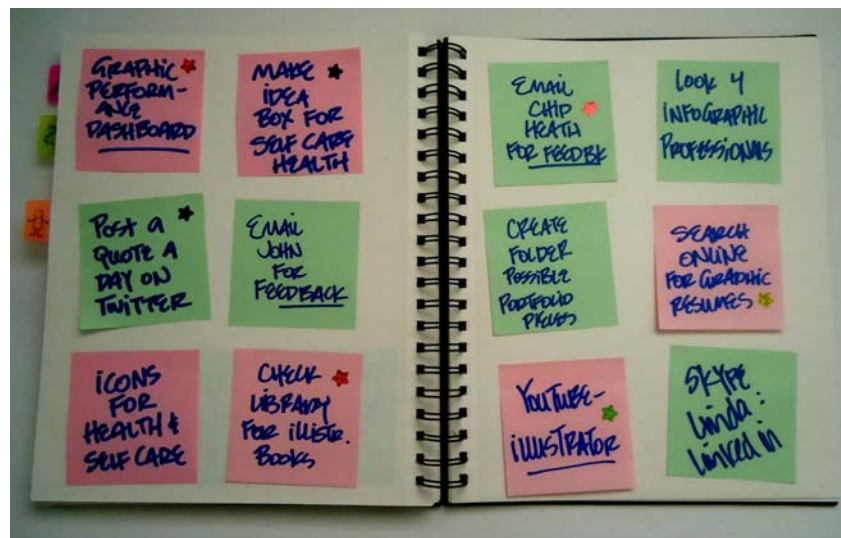 GRAPHIC
PERFORM-
ANCE
DASHBOARD
MAKE
IDEA
BOX FOR
SELF CARE
HEALTH
POST A
QUOTE A
DAY ON
TWITTER
EMAIL
JOHN
FOR
FEEDBACK
ICONS
FOR
HEALTH &
SELF CARE
CHECK
LIBRARY
FOR ILLISTR.
BOOKS
EMAIL
CHIP
HEATH
FOR FEEDBK
LOOK 4
INFOGRAPHIC
PROFESSIONALS
CREATE
FOLDER
POSSIBLE
PORTFOLIO
PIECES
SEARCH
ONLINE
FOR GRAPHIC
RESUMES
YOUTUBE-
ILLUSTRATOR
SKYPE
Linda:
Linked in